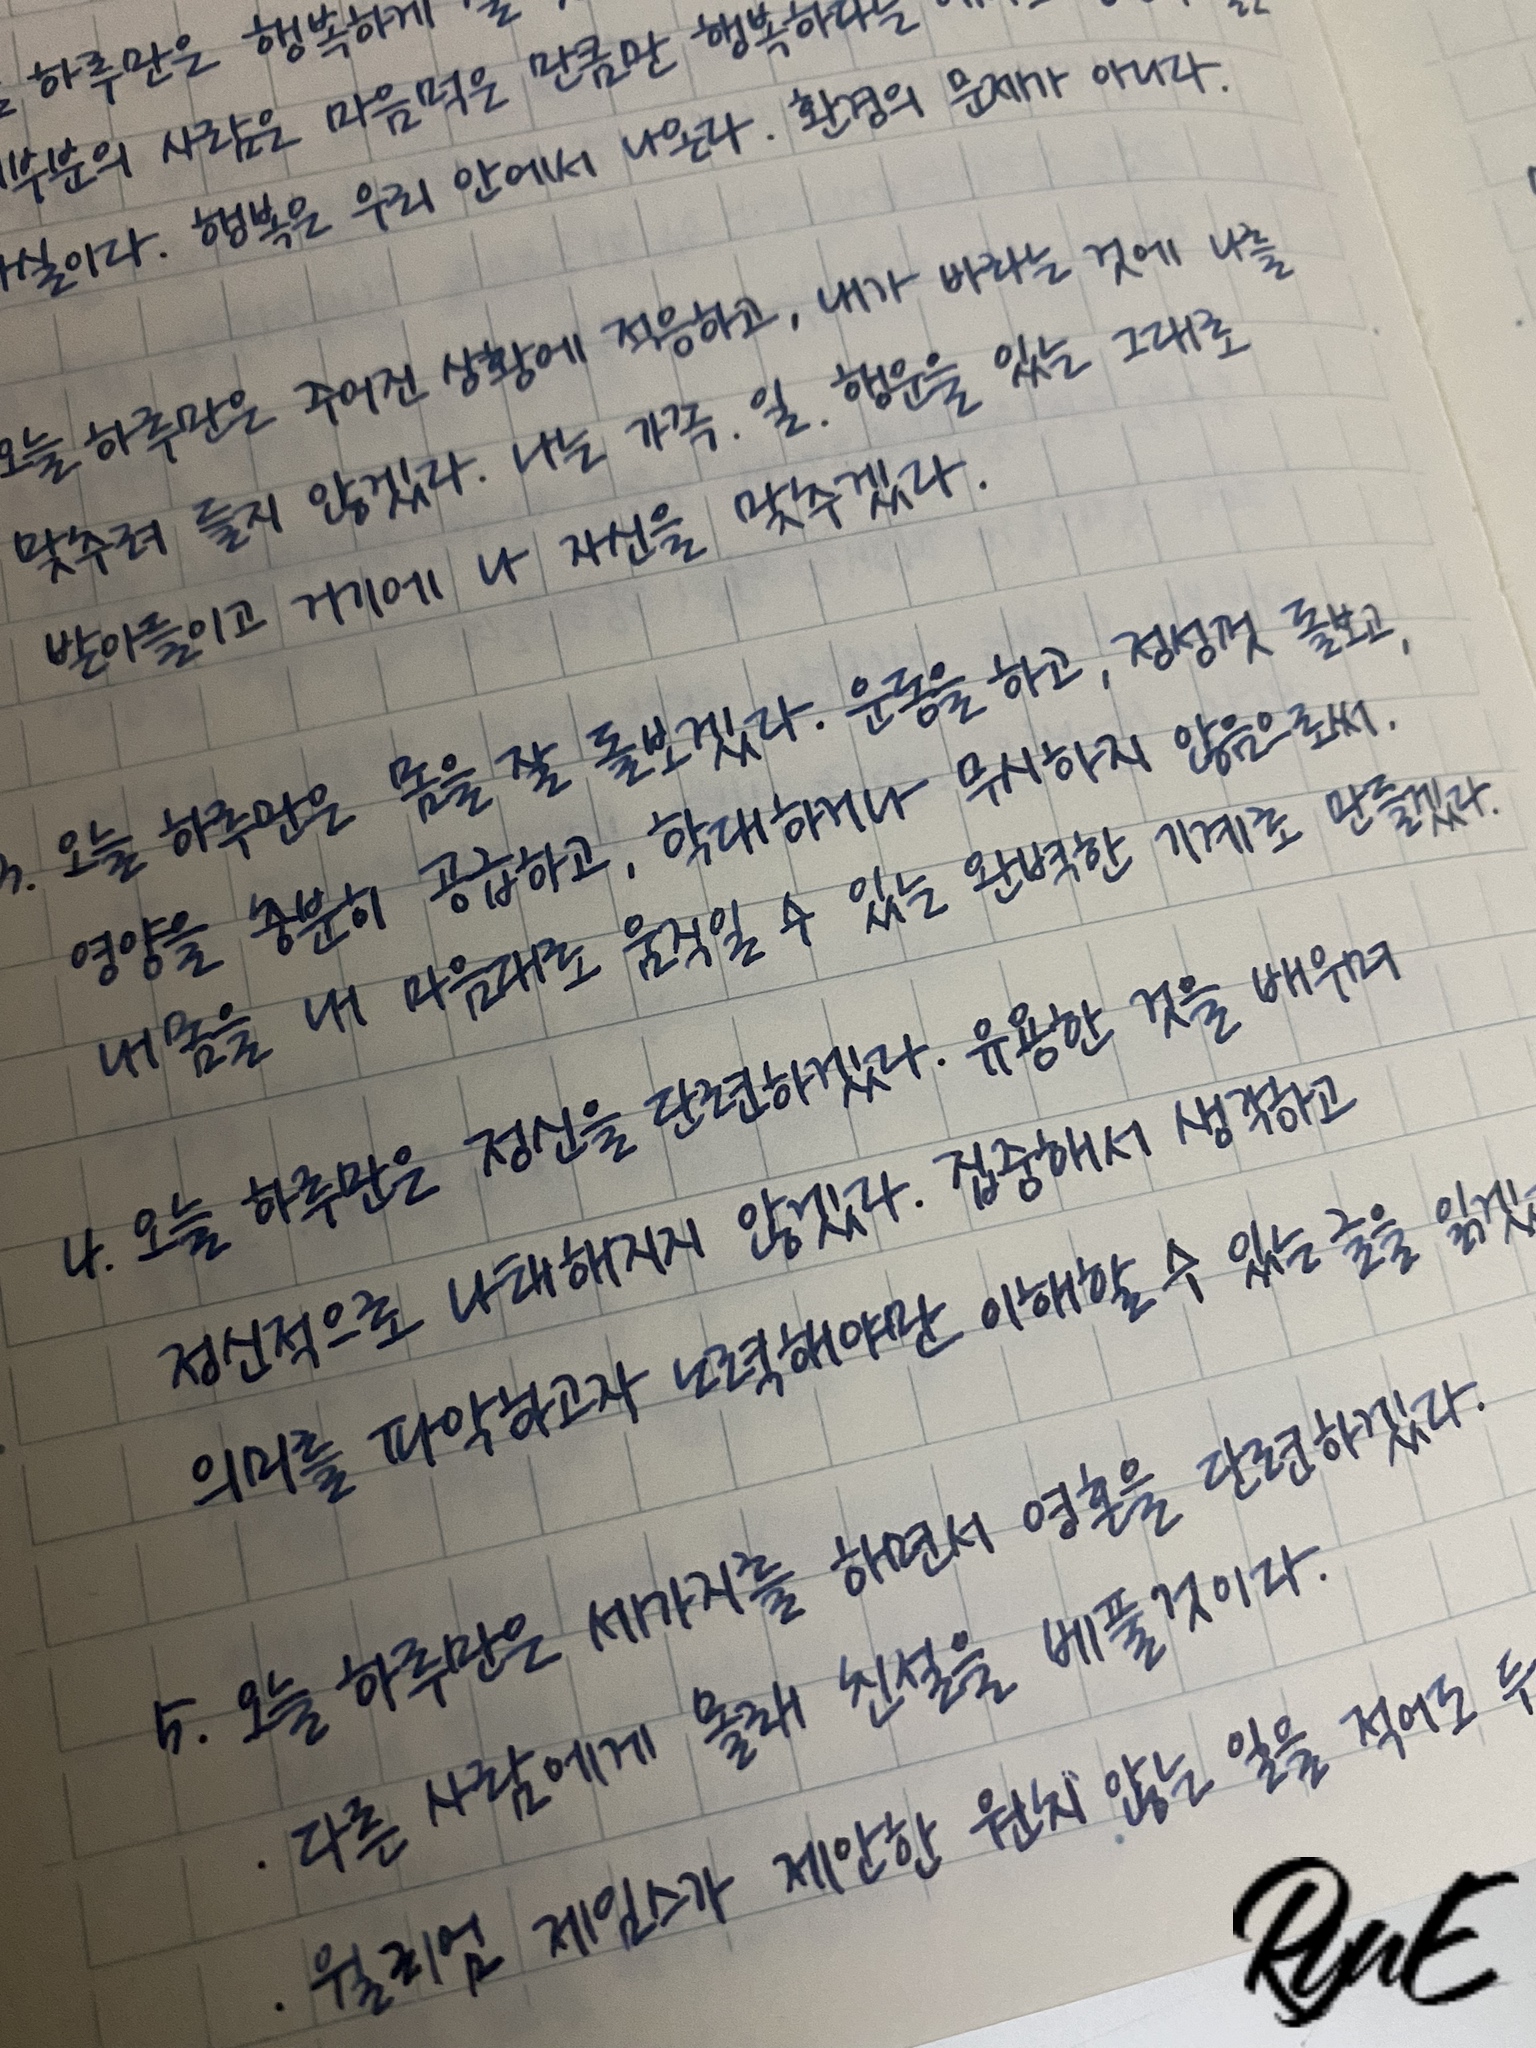 하루만은 행복하게
사람은 마음먹은 만큼만 행복하다는
사실이다. 행복은 우리 안에서 나온다. 환경의 문제가 아니다.
오늘 하루만은 주어진 상황에 적응하고, 내가 바라는 것에 나를
맞추려 들지 않겠다. 나는 가족. 일. 행운을 있는 그대로
받아들이고 거기에 나 자신을 맞추겠다.
3. 오늘 하루만은 몸을 잘 돌보겠다. 운동을 하고, 정성껏 돌보고,
영양을 충분히 공급하고, 학대하거나 무시하지 않음으로써.
내 몸을 내 마음대로 움직일 수 있는 완벽한 기계로 만들겠다.
4. 오늘 하루만은 정신을 단련하겠다. 유용한 것을 배우며
정신적으로 나태해지지 않겠다. 집중해서 생각하고
의미를 파악하고자 노력해야만 이해할 수 있는 글을 읽겠
5. 오늘 하루만은 세가지를 하면서 영혼을 단련하겠다.
· 다른 사람에게 몰래 친절을 베풀 것이다.
· 윌리엄 제임스가 제안한 원치 않는 일을 적어도 두
RynE